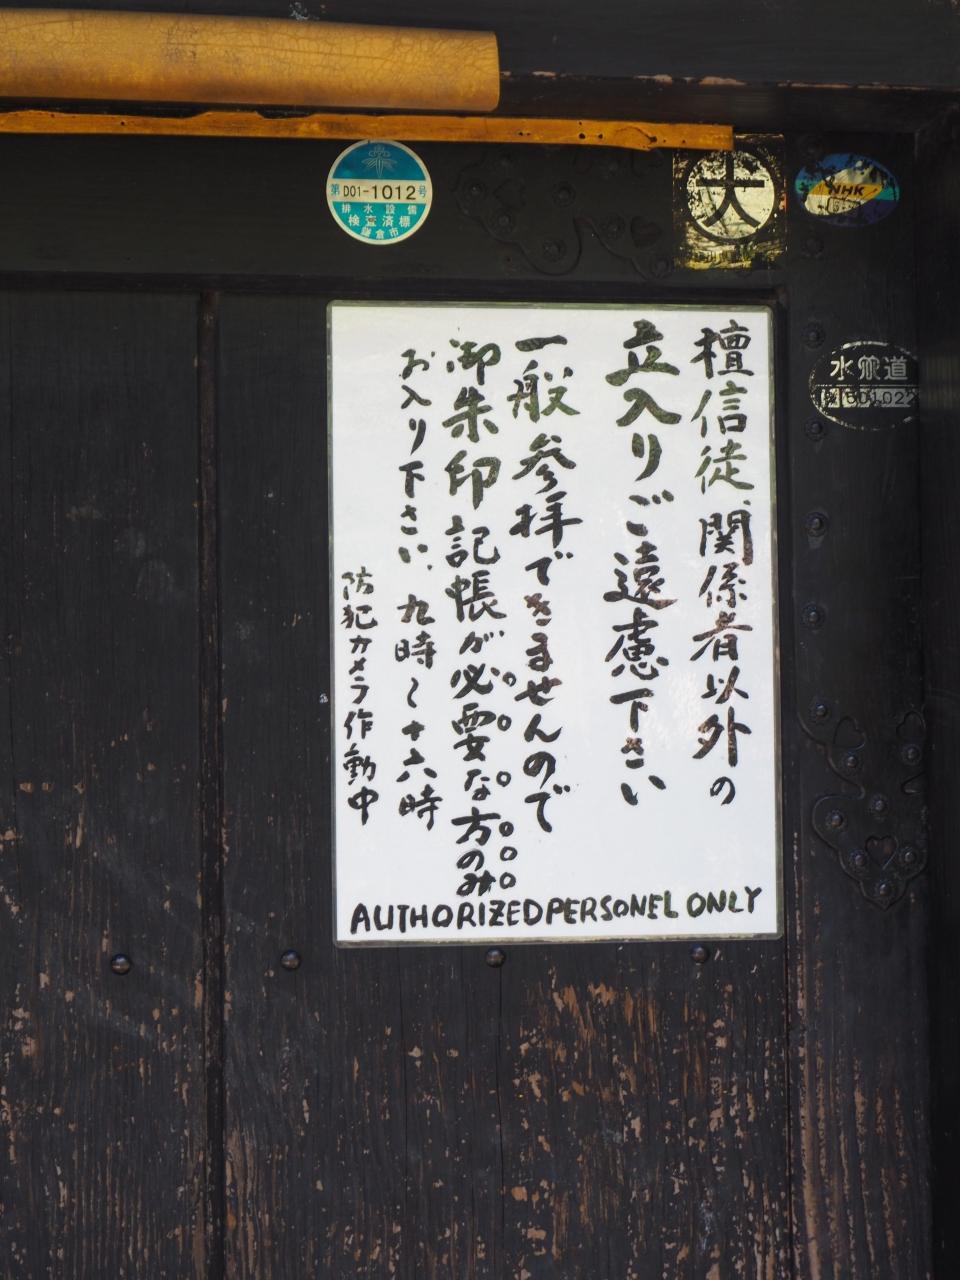 第D01-1012号
排水設備
検査済標
鎌倉市
犬
NHK
水道
檀信徒、関係者以外の
立入りご遠慮下さい
一般参拝できませんので
御朱印記帳が必要な方のみ
お入り下さい、九時〜十六時
防犯カメラ作動中
AUTHORIZED PERSONEL ONLY